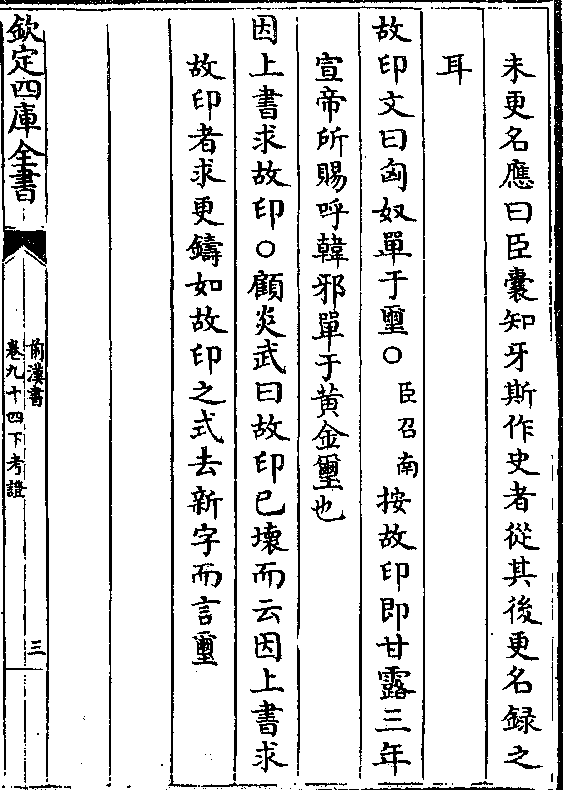 未更名應曰臣囊知牙斯作史者從其後更名録之
耳
故印文曰匈奴單于璽○臣召南按故印即甘露三年
宣帝所賜呼韓邪單于黄金璽也
因上書求故印○顧炎武曰故印已壞而云因上書求
故印者求更鑄如故印之式去新字而言璽
欽定四庫全書
前漢書
卷九十四下考證
三